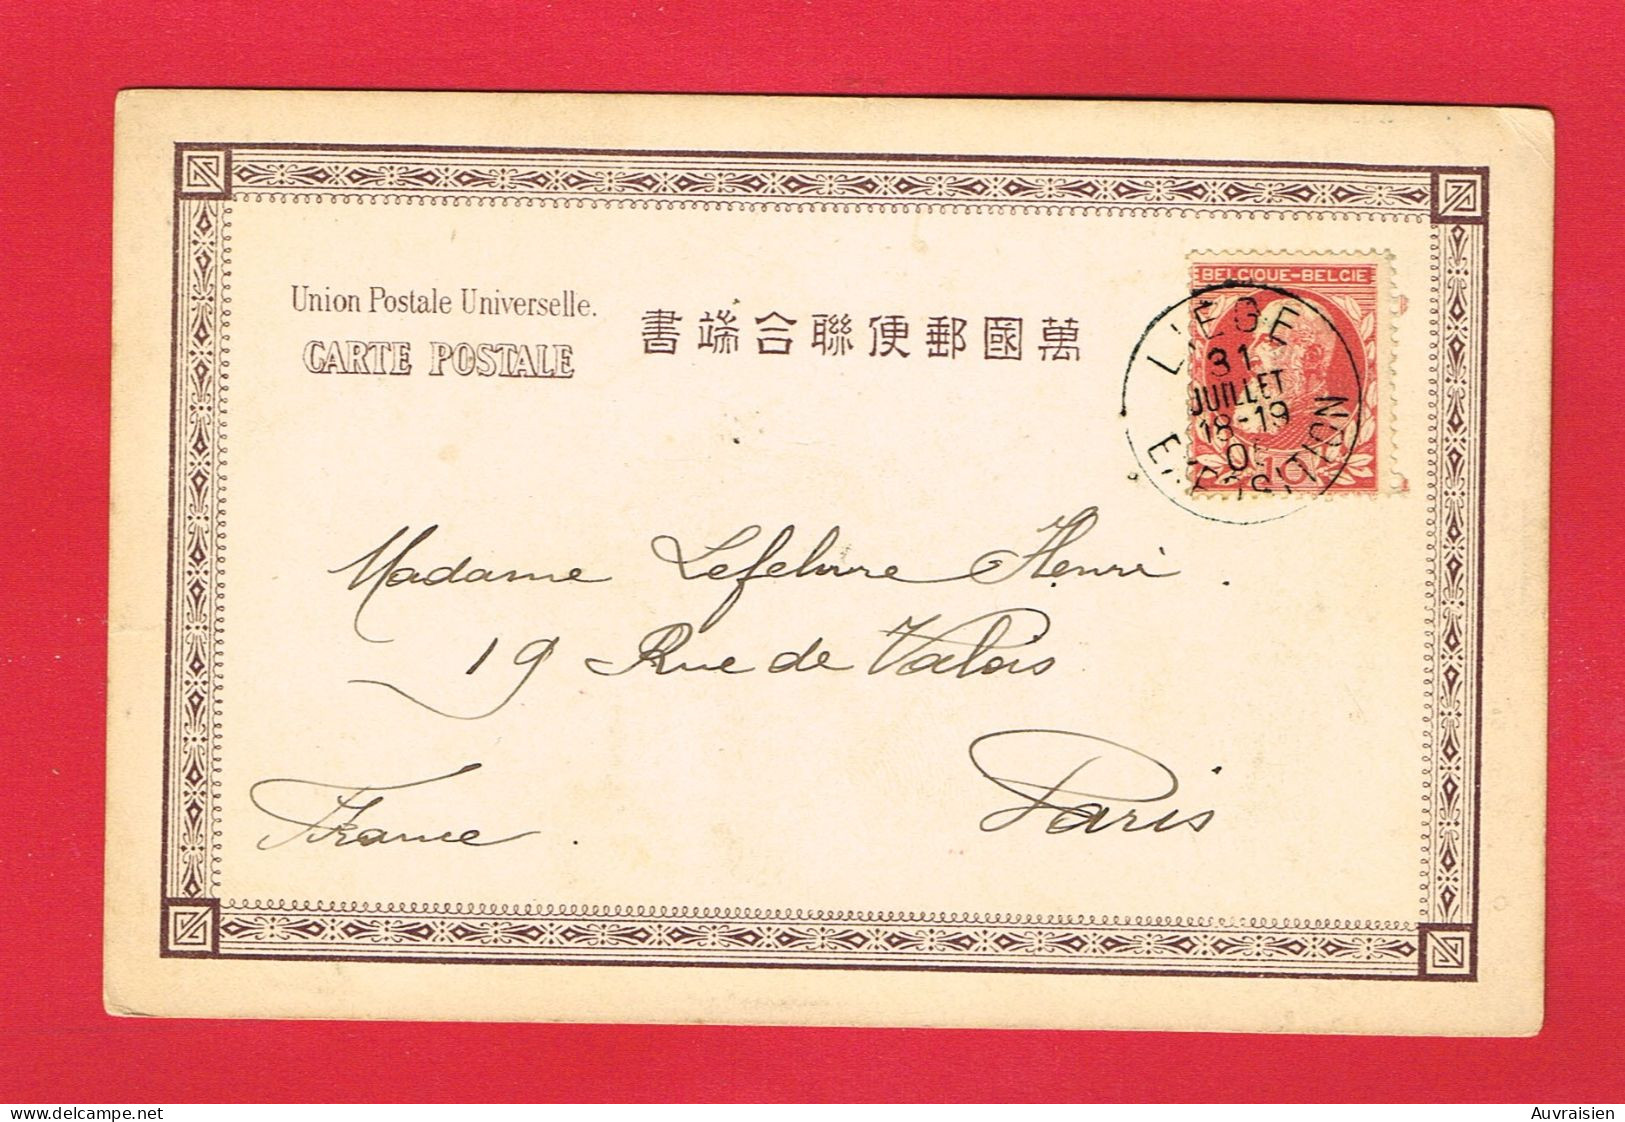 Union Postale Universelle.
CARTE POSTALE
書端合聯便郵國萬
BELGIQUE-BELGIE
LIEGE
31
JUILLET
18-19
10
Madame Lefebvre Henri.
19 Rue de Valois
Paris
France.
delcampe.net
Auvraisien